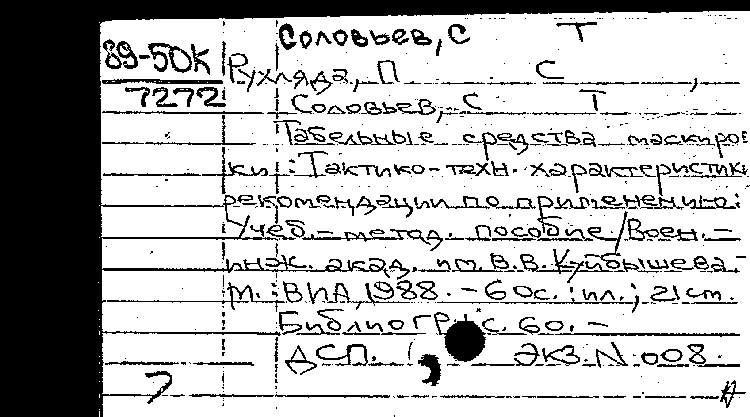 Соловьев, С Т
89-50К
7272
Рухляда, П С ,
Соловьев, С Т
Табельные средства маскиров
ки : Тактико-техн. характеристики
рекомендации по применению:
Учеб.-метод. пособие/Воен.-
инж. акад. им. В.В.Куйбышева.-
М.:ВИА,1988.-60с.:ил.; 21ст.
Библиогр: с. 60.-
ДСП. Экз.N 008.